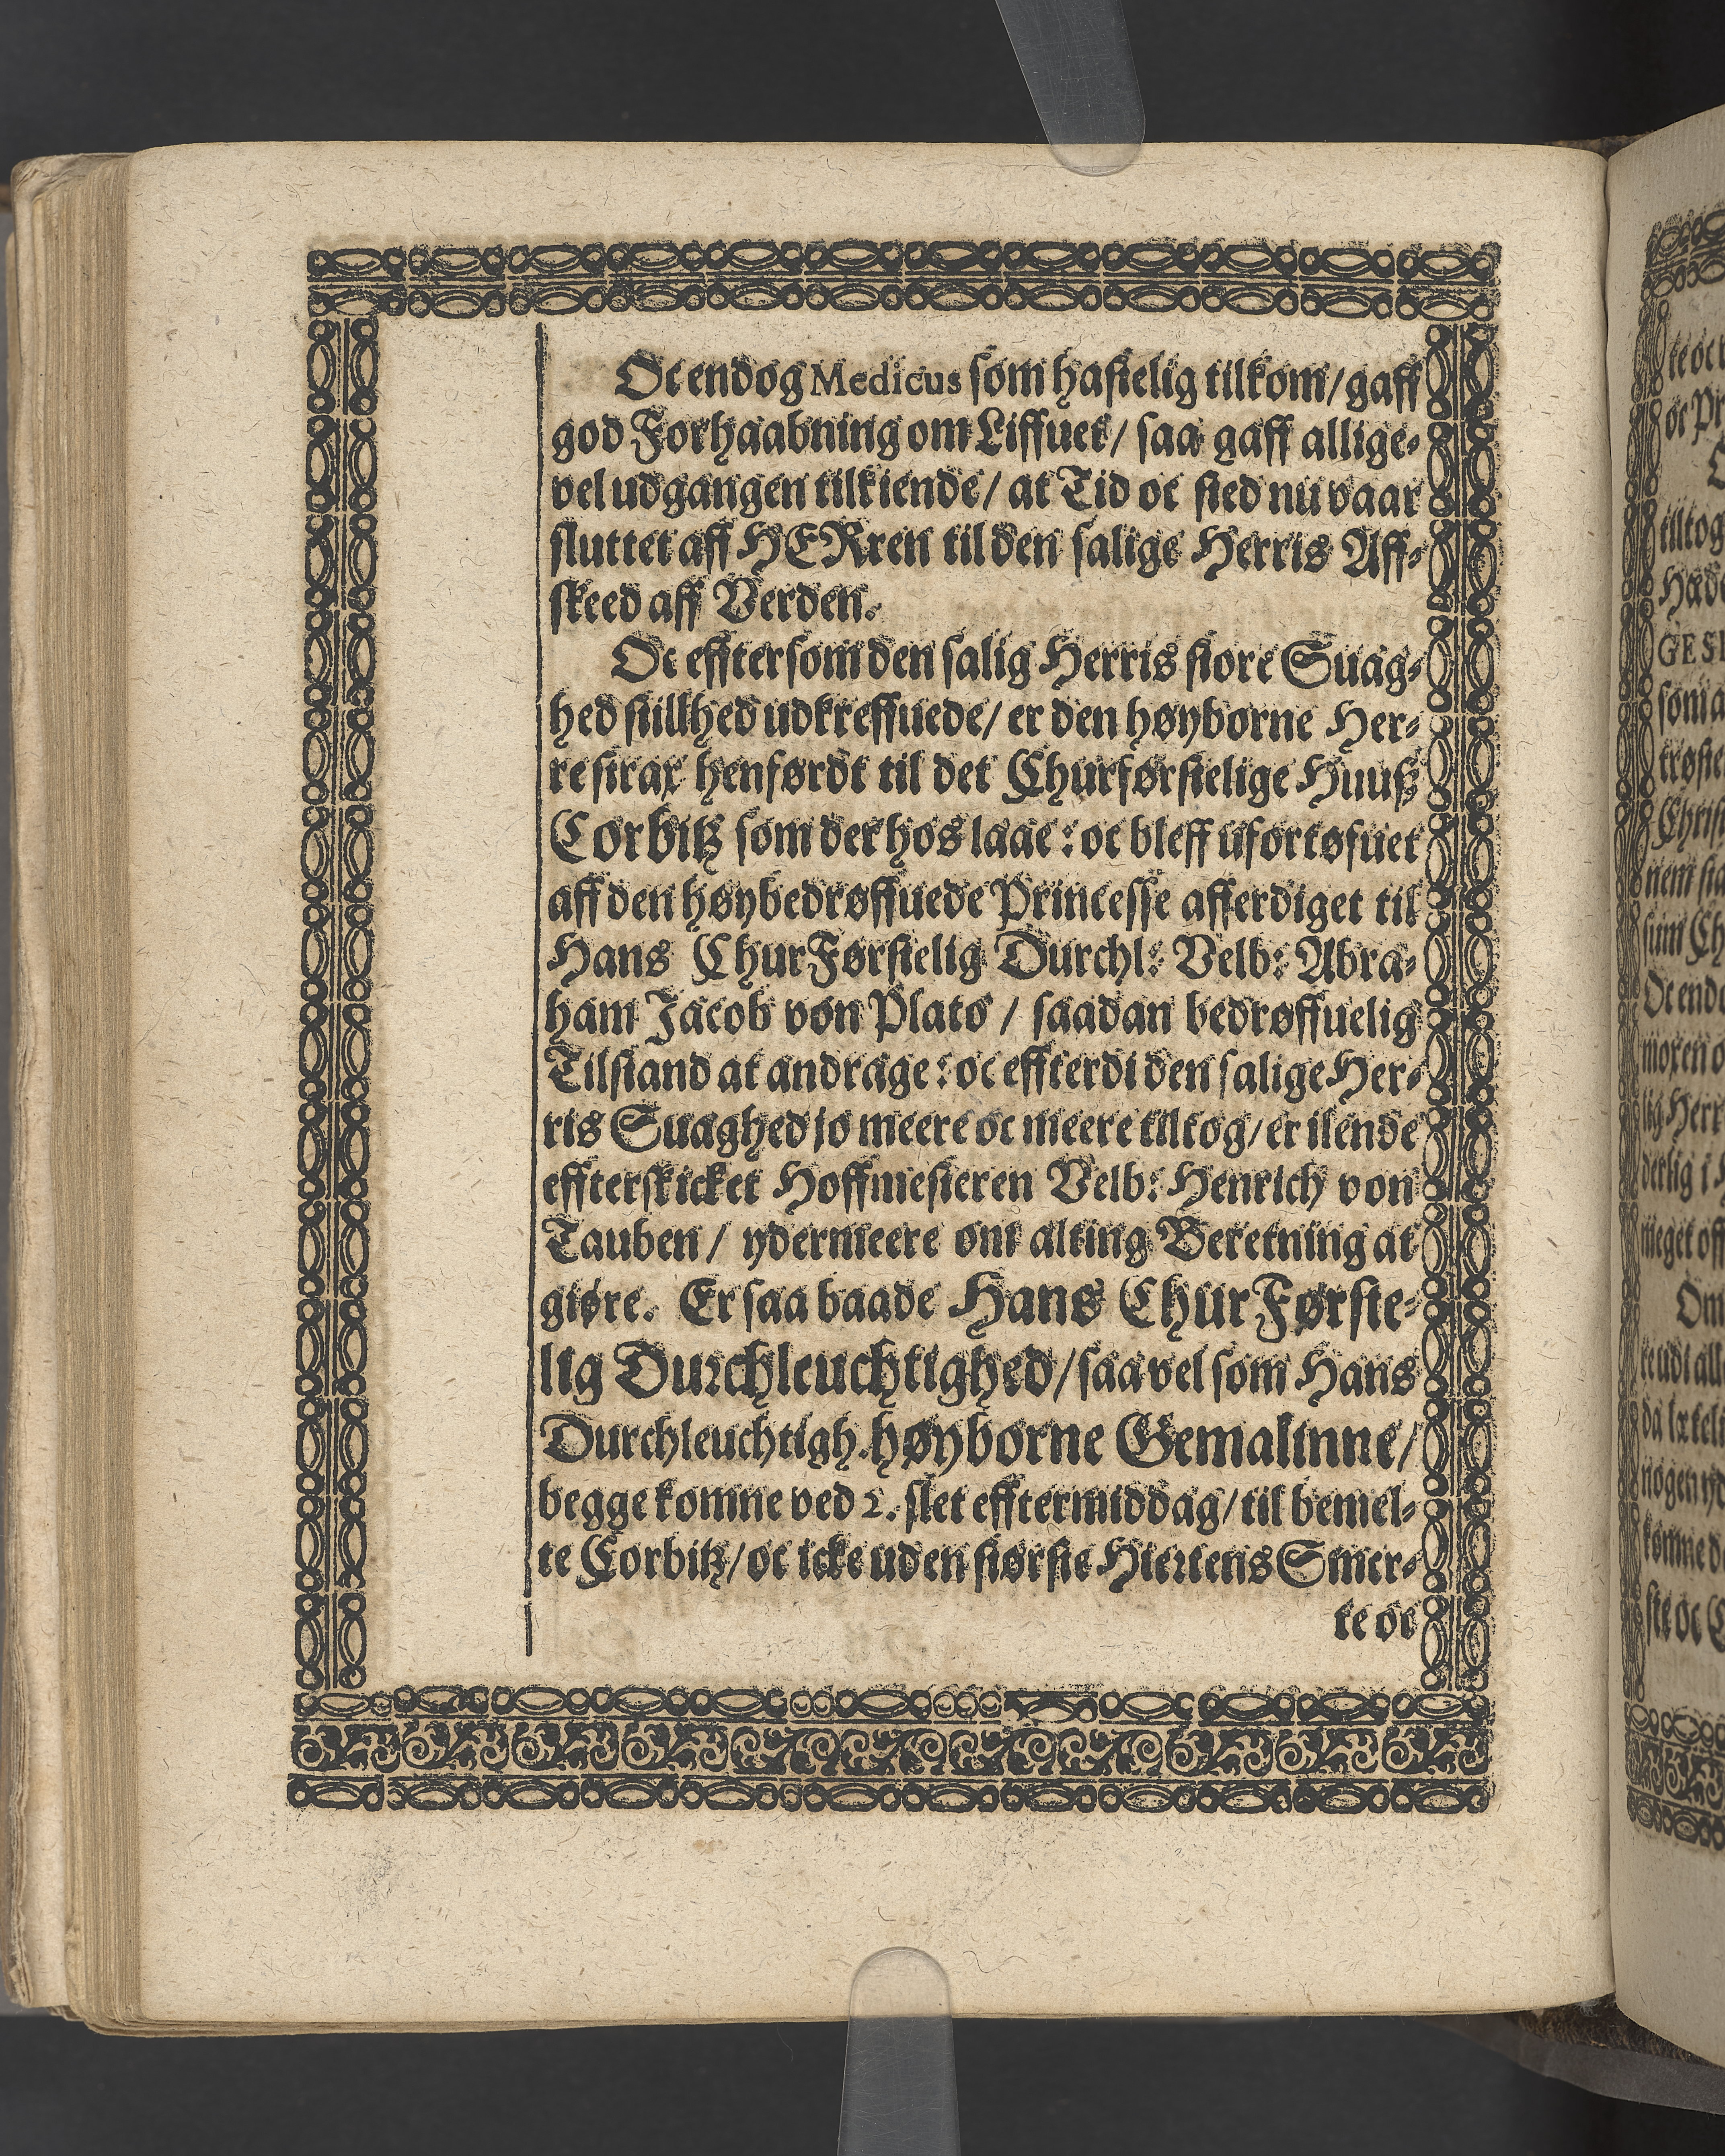 Oc endog Medicus som hastelig tilkom/ gaff
god Forhaabning om Liffuet/ saa gaff allige-
vel udgangen tilkiende/ at Tid oc sted nu vaar
sluttet aff HERren til den salige Herris Aff-
skeed aff Verden.
Oc effter som den salig Herris store Suag-
hed stillhed udkreffuede/ er den høyborne Her-
re strax henførdt til det Churførstelige Huuß
Corbitz som der hos laae: oc bleff ufortøfuet
aff den høybedrøffuede Princesse afferdiget til
Hans ChurFørstelig Durchl: Velb: Abra-
ham Jacob von Plato / saadan bedrøffuelig
Tilstand at andrage: oc effterdi den salige Her-
ris Suaghed jo meere oc meere tiltog/ er ilende
effterskicket Hoffmesteren Velb: Henrich von
Tauben / ydermeere om alting Beretning at
giøre. Er saa baade Hans ChurFørste-
lig Durchleuchtighed/ saa vel som Hans
Durchleuchtigh. høyborne Gemalinne/
begge komne ved 2. slet efftermiddag/ til bemel-
te Corbitz/ oc icke uden største Hiertens Smer-
te oc
te oc
oc Pr
tiltog
GESI
som a
trøste
Christ
Oc end
lig Herr
derlig i H
meget off
Om